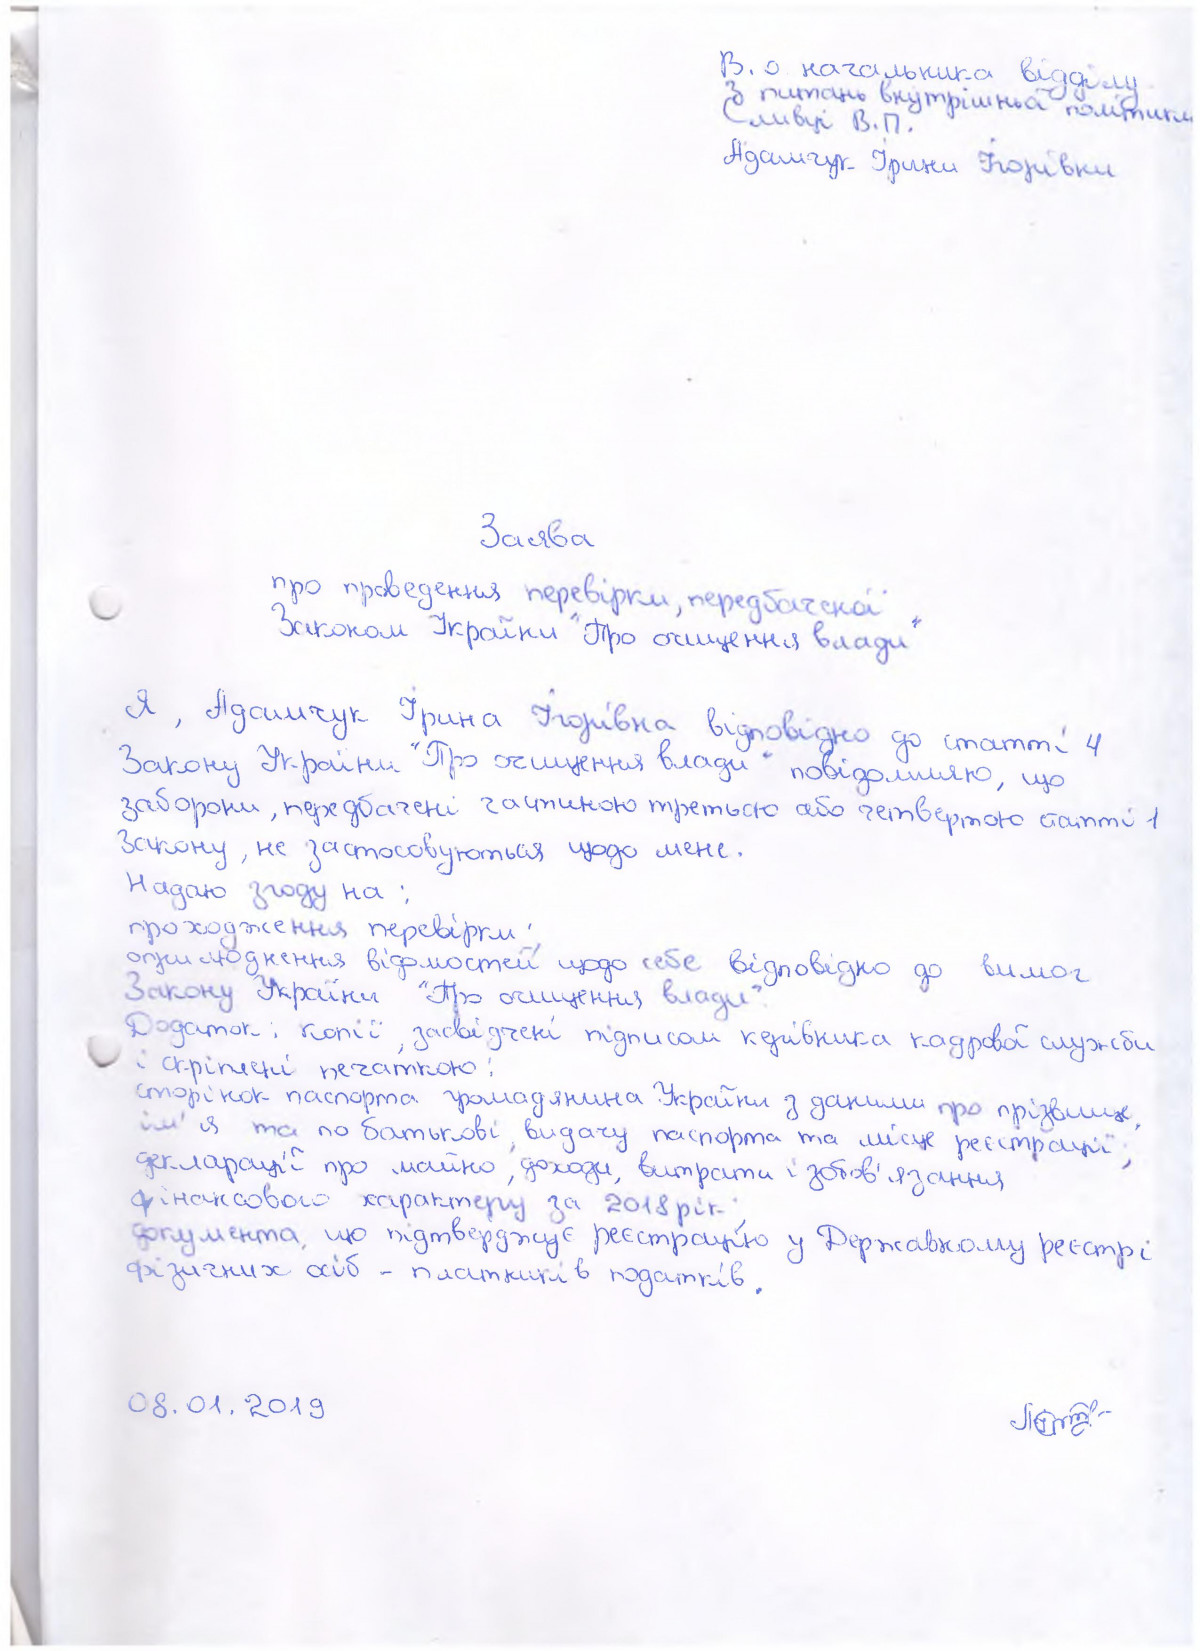 В.о начальника відділу
з питань внутрішньої політики
Сливці В.П.
Адамчук Ірини Ігорівни
Заява
про проведення перевірки, передбаченої
Законом України "Про очищення влади"
Я, Адамчук Ірина Ігорівна відповідно до статті 4
Закону України "Про очищення влади" повідомляю, що
заборони, передбачені частиною третьою або четвертою статті 1
Закону, не застосовуються щодо мене.
Надаю згоду на:
проходження перевірки;
оприлюднення відомостей щодо себе відповідно до вимог
Закону України "Про очищення влади".
Додаток: копії, засвідчені підписом керівника кадрової служби
і скріплені печаткою:
сторінок паспорта громадянина України з даними про прізвище,
ім'я та по батькові, видачу паспорта та місце реєстрації;
декларації про майно, доходи, витрати і зобов'язання
фінансового характеру за 2018 рік;
документа, що підтверджує реєстрацію у Державному реєстрі
фізичних осіб - платників податків.
08.01.2019